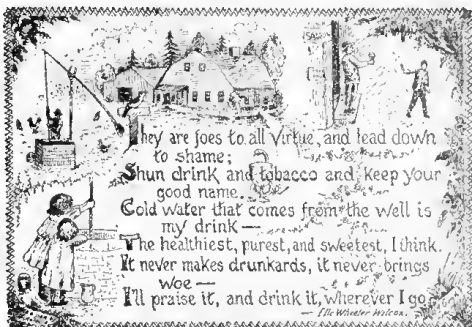 They are foes to all virtue, and lead down
to shame;
Shun drink and tobacco and keep your
good name.
Cold water that comes from the well is
my drink —
The healthiest, purest, and sweetest, I think.
It never makes drunkards, it never brings
woe —
I'll praise it, and drink it, wherever I go.
— Ella Wheeler Wilcox.